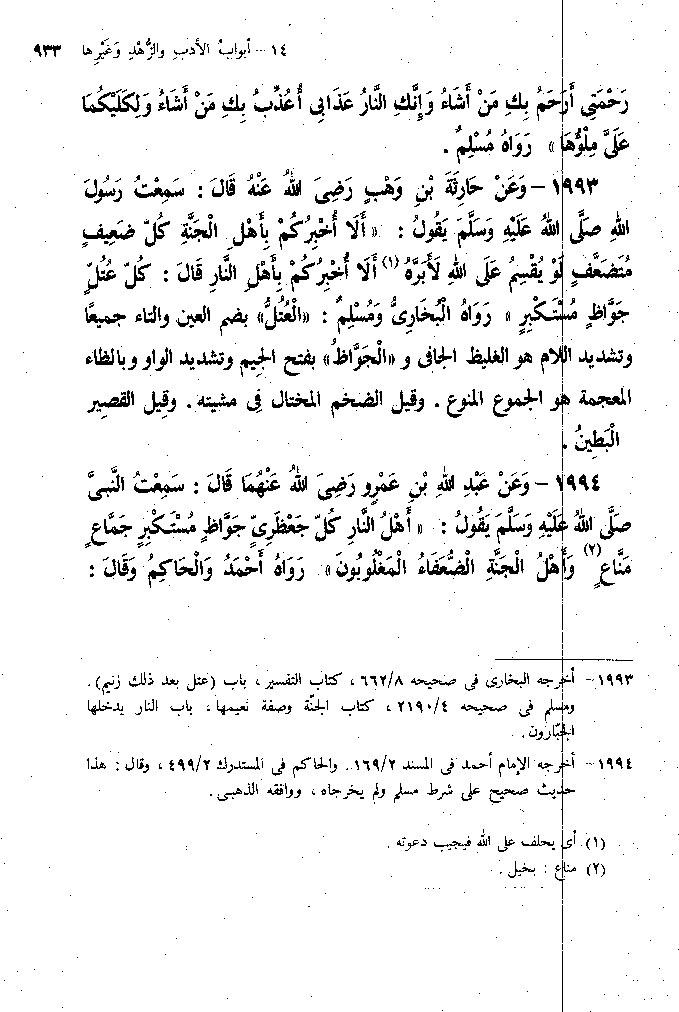 ١٤ - أبوابُ الأدبِ والزُّهْدِ وَغَيْرِها ٩٣٣
رَحْمَتِى أَرْحَمُ بِكِ مَنْ أَشَاءُ وَإِنَّكِ النَّارُ عَذَابِى أُعَذِّبُ بِكِ مَنْ أَشَاءُ وَلِكِلَيْكُمَا
عَلَىَّ مِلْؤُهَا» رَوَاهُ مُسْلِمٌ .
١٩٩٣ - وَعَنْ حَارِثَةَ بْنِ وَهْبٍ رَضِىَ اللهُ عَنْهُ قَالَ : سَمِعْتُ رَسُولَ
اللهِ صَلَّى اللهُ عَلَيْهِ وَسَلَّمَ يَقُولُ : «أَلَا أُخْبِرُكُمْ بِأَهْلِ الْجَنَّةِ كُلّ ضَعِيفٍ
مُتَضَعَّفٍ لَوْ يُقْسِمُ عَلَى اللهِ لَأَبَرَّهُ (١) أَلَا أُخْبِرُكُمْ بِأَهْلِ النَّارِ قَالَ : كُلّ عُتُلّ
جَوَّاظٍ مُسْتَكْبِرٍ » رَوَاهُ الْبُخَارِىُّ وَمُسْلِمٌ : «الْعُتُلُّ» بضم العين والتاء جميعًا
وتشديد اللام هو الغليظ الجافى و «الْجَوَّاظُ» بفتح الجيم وتشديد الواو وبالظاء
المعجمة هو الجموع المنوع . وقيل الضخم المختال فى مشيته . وقيل القصير
الْبَطِينُ .
١٩٩٤ - وَعَنْ عَبْدِ اللهِ بْنِ عَمْرٍو رَضِىَ اللهُ عَنْهُمَا قَالَ : سَمِعْتُ النَّبِىَّ
صَلَّى اللهُ عَلَيْهِ وَسَلَّمَ يَقُولُ : «أَهْلُ النَّارِ كُلّ جَعْظَرِىّ جَوَّاظٍ مُسْتَكْبِرٍ جَمَّاعٍ
مَنَّاعٍ (٢) وَأَهْلُ الْجَنَّةِ الضُّعَفَاءُ الْمَغْلُوبُونَ» رَوَاهُ أَحْمَدُ وَالْحَاكِمُ وَقَالَ :
١٩٩٣ - أخرجه البخارى فى صحيحه ٦٦٢/٨ ، كتاب التفسير ، باب (عتل بعد ذلك زنيم) .
ومسلم فى صحيحه ٢١٩٠/٤ ، كتاب الجنّة وصفة نعيمها ، باب النار يدخلها
الجبّارون .
١٩٩٤ - أخرجه الإمام أحمد فى المسند ١٦٩/٢ . والحاكم فى المستدرك ٤٩٩/٢ ، وقال : هذا
حديث صحيح على شرط مسلم ولم يخرجاه ، ووافقه الذهبى .
(١) أى يحلف على الله فيجيب دعوته .
(٢) مناع : بخيل .